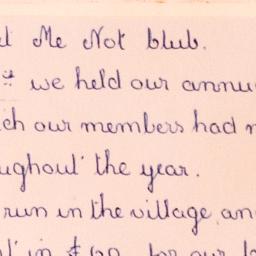 Me Not blub.
we held our annu
ch our members had
ughout the year.
run in the village an
in for our